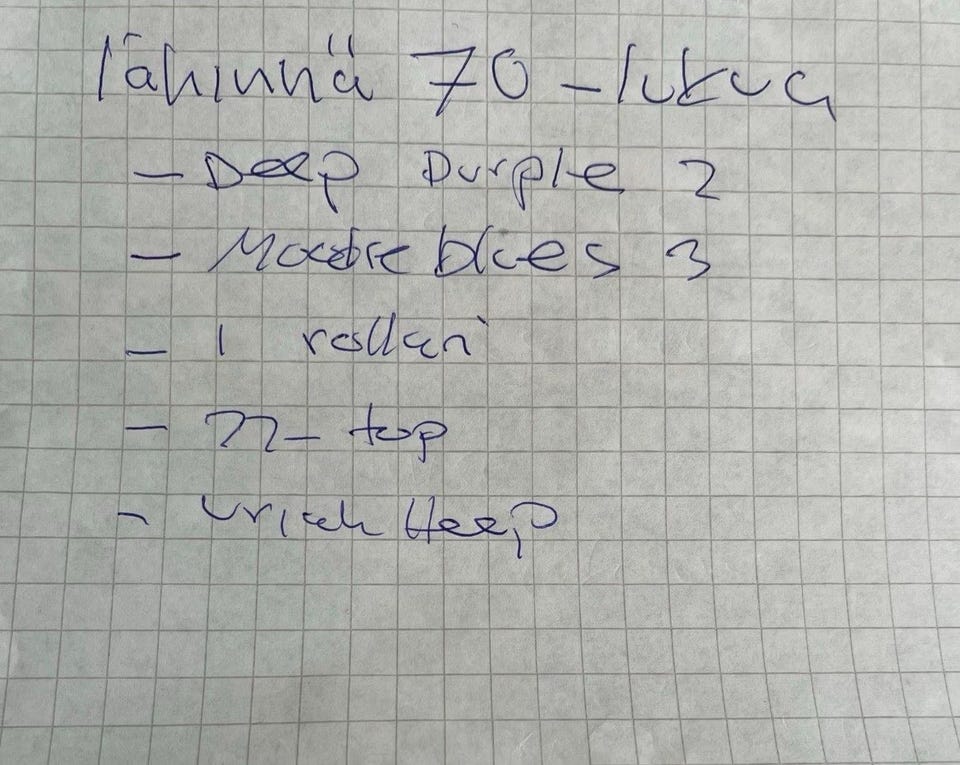 lähinnä 70-lukua
- Deep Purple 2
- Moodie blues 3
- 1 rollari
- ZZ-top
- Uriah Heep